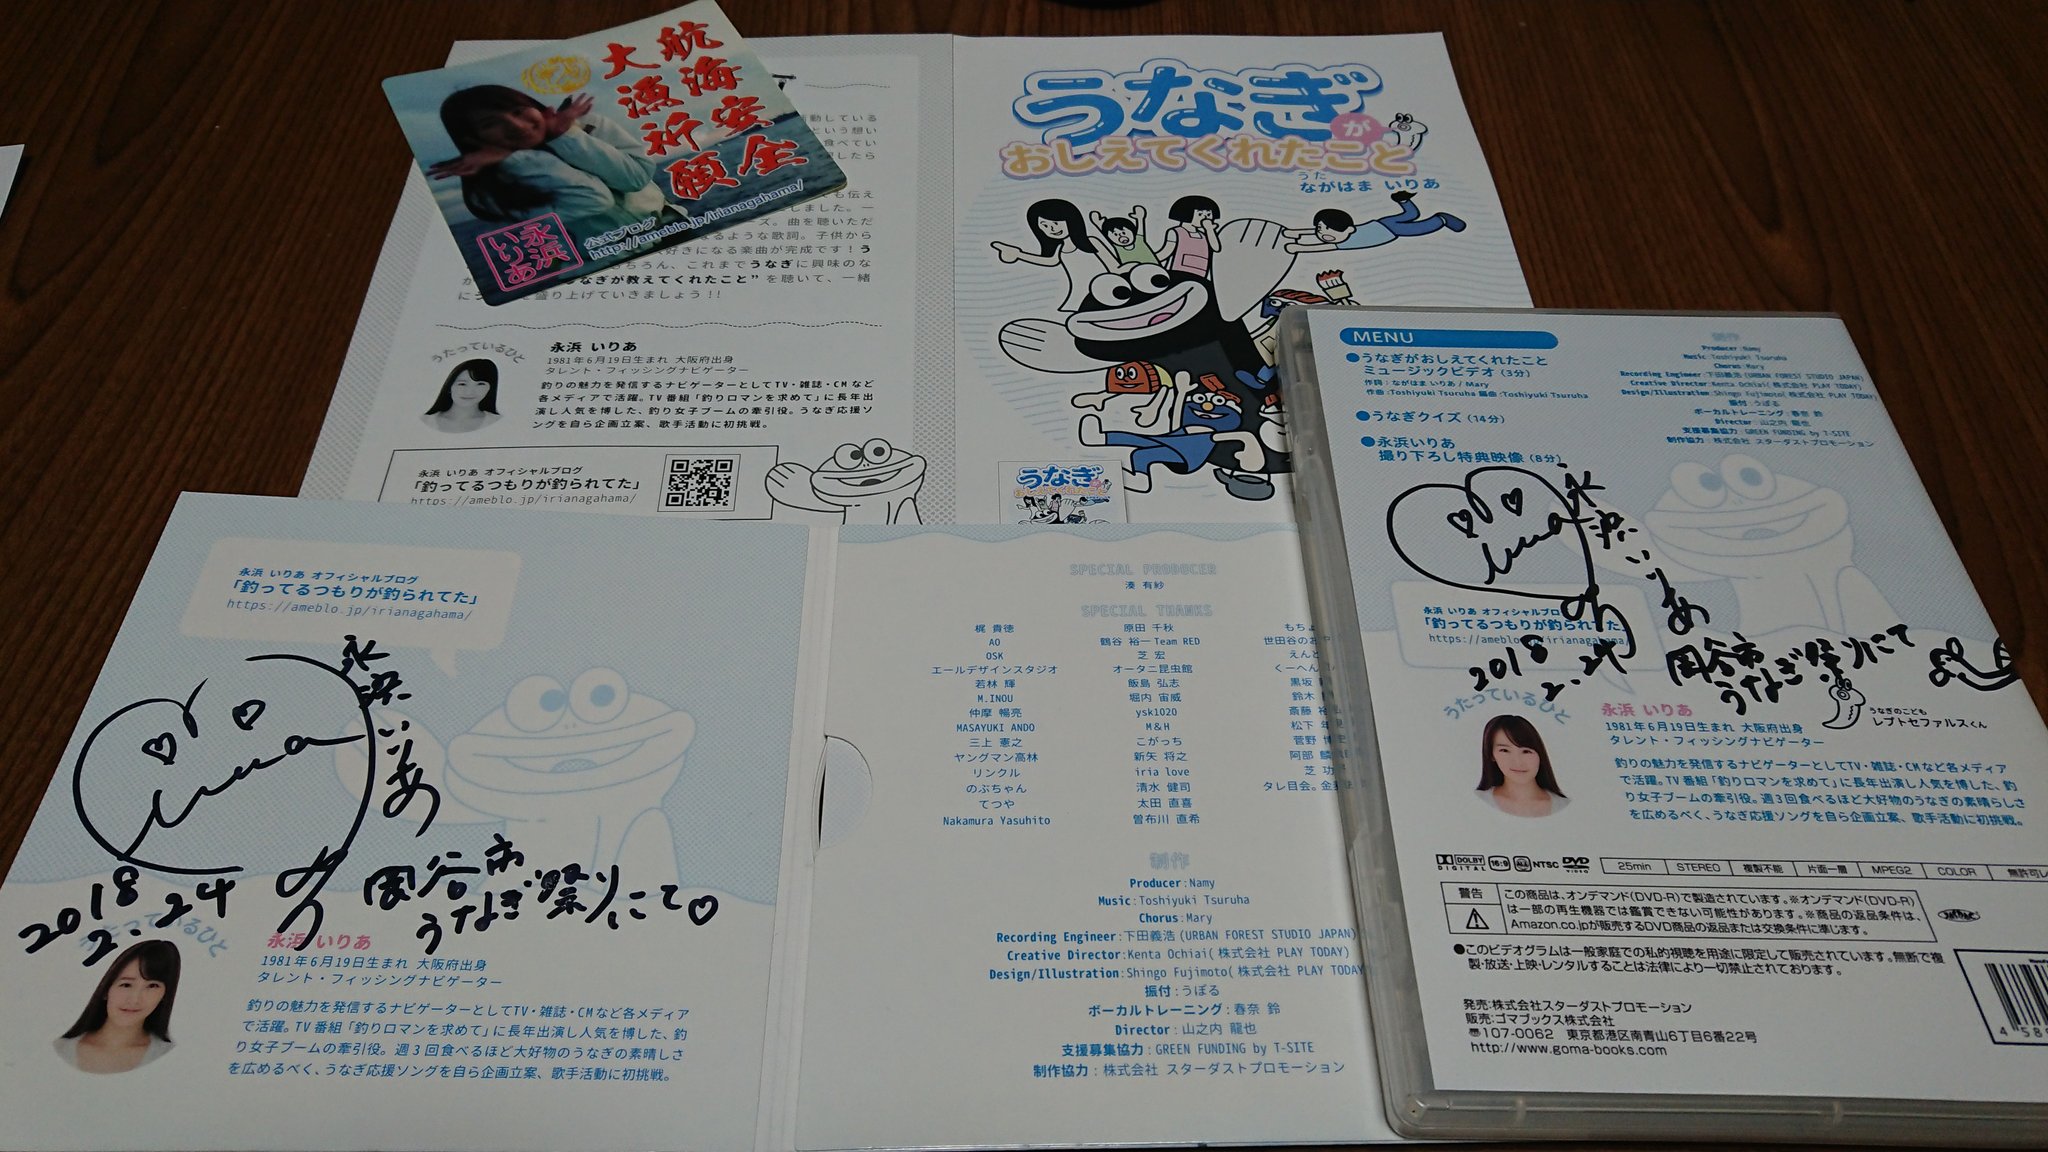 航海安全
大漁祈願
永浜
いりあ
公式ブログ
http://ameblo.jp/irianagahama/
動している
という想い
食べてい
したら
も伝え
しました。一
ズ。曲を聴いただ
なるような歌詞。子供から
好きになる楽曲が完成です！う
ちろん、これまでうなぎに興味のな
なぎが教えてくれたこと”を聴いて、一緒
盛り上げていきましょう!!
うたっているひと
永浜 いりあ
1981年6月19日生まれ 大阪府出身
タレント・フィッシングナビゲーター
釣りの魅力を発信するナビゲーターとしてTV・雑誌・CMなど
各メディアで活躍。TV番組「釣りロマンを求めて」に長年出
演し人気を博した、釣り女子ブームの牽引役。うなぎ応援ソ
ングを自ら企画立案、歌手活動に初挑戦。
永浜 いりあ オフィシャルブログ
「釣ってるつもりが釣られてた」
https://ameblo.jp/irianagahama/
うなぎが
おしえてくれたこと
うた
ながはま いりあ
うなぎが
おしえてくれたこと
永浜 いりあ オフィシャルブログ
「釣ってるつもりが釣られてた」
https://ameblo.jp/irianagahama/
永浜いりあ
2018
2.24
岡谷市
うなぎ祭りにて♡
うたっているひと
永浜 いりあ
1981年6月19日生まれ 大阪府出身
タレント・フィッシングナビゲーター
釣りの魅力を発信するナビゲーターとしてTV・雑誌・CMなど各メディア
で活躍。TV番組「釣りロマンを求めて」に長年出演し人気を博した、釣
り女子ブームの牽引役。週3回食べるほど大好物のうなぎの素晴らしさ
を広めるべく、うなぎ応援ソングを自ら企画立案、歌手活動に初挑戦。
SPECIAL PRODUCER
湊 有紗
SPECIAL THANKS
梶 貴徳 原田 千秋 もちよ
AO 鶴谷 裕一 Team RED 世田谷のお
OSK 芝 宏 えんと
エールデザインスタジオ オータニ昆虫館 くーへん
若林 輝 飯島 弘志 黒坂
M.INOU 堀内 宙威 鈴木
仲摩 暢亮 ysk1020 斎藤
MASAYUKI ANDO M&H 松下
三上 憲之 こがっち 菅野
ヤングマン高林 新矢 将之 阿部
リンクル iria love 芝
のぶちゃん 清水 健司 タレ目会。金
てつや 太田 直喜
Nakamura Yasuhito 曽布川 直希
制作
Producer:Namy
Music:Toshiyuki Tsuruha
Chorus:Mary
Recording Engineer:下田義浩(URBAN FOREST STUDIO JAPAN)
Creative Director:Kenta Ochiai(株式会社 PLAY TODAY)
Design/Illustration:Shingo Fujimoto(株式会社 PLAY TODAY
振付:うぽる
ボーカルトレーニング:春奈 鈴
Director:山之内 龍也
支援募集協力:GREEN FUNDING by T-SITE
制作協力:株式会社 スターダストプロモーション
MENU
●うなぎがおしえてくれたこと
ミュージックビデオ(3分)
作詞:ながはま いりあ/Mary
作曲:Toshiyuki Tsuruha 編曲:Toshiyuki Tsuruha
●うなぎクイズ(14分)
●永浜いりあ
撮り下ろし特典映像(8分)
制作
Producer:Namy
Music:Toshiyuki Tsuruha
Chorus:Mary
Recording Engineer:下田義浩(URBAN FOREST STUDIO JAPAN)
Creative Director:Kenta Ochiai(株式会社 PLAY TODAY)
Design/Illustration:Shingo Fujimoto(株式会社 PLAY TODAY)
振付:うぽる
ボーカルトレーニング:春奈 鈴
Director:山之内 龍也
支援募集協力:GREEN FUNDING by T-SITE
制作協力:株式会社 スターダストプロモーション
永浜いりあ
永浜 いりあ オフィシャルブロ
「釣ってるつもりが釣られてた」
https://ameblo.jp/irianagahama/
2018
2.24
岡谷市
うなぎ祭りにて
うなぎのこども
レプトセファルスくん
うたっているひと
永浜 いりあ
1981年6月19日生まれ 大阪府出身
タレント・フィッシングナビゲーター
釣りの魅力を発信するナビゲーターとしてTV・雑誌・CMなど各メディア
で活躍。TV番組「釣りロマンを求めて」に長年出演し人気を博した、釣
り女子ブームの牽引役。週3回食べるほど大好物のうなぎの素晴らしさ
を広めるべく、うなぎ応援ソングを自ら企画立案、歌手活動に初挑戦。
DOLBY DIGITAL 16:9 ALL NTSC DVD VIDEO 25min STEREO 複製不能 片面一層 MPEG2 COLOR 無許可レ
警告
この商品は、オンデマンド(DVD-R)で製造されています。※オンデマンド(DVD-R)
は一部の再生機器では鑑賞できない可能性があります。※商品の返品条件は、
Amazon.co.jpが販売するDVD商品の返品または交換条件に準じます。
●このビデオグラムは一般家庭での私的視聴を用途に限定して販売されています。無断で複
製・放送・上映・レンタルすることは法律により一切禁止されております。
発売:株式会社スターダストプロモーション
販売:ゴマブックス株式会社
〠107-0062 東京都港区南青山6丁目6番22号
http://www.goma-books.com
4 58